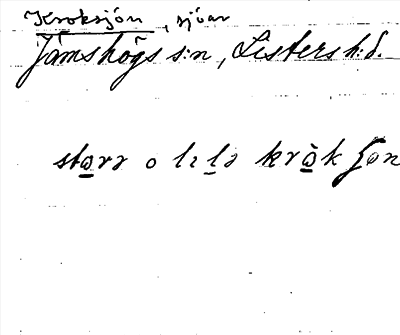 Kroksjön, sjöar
Jämshögs s:n, Listers h:d.
starə o lılə kròkʃøn